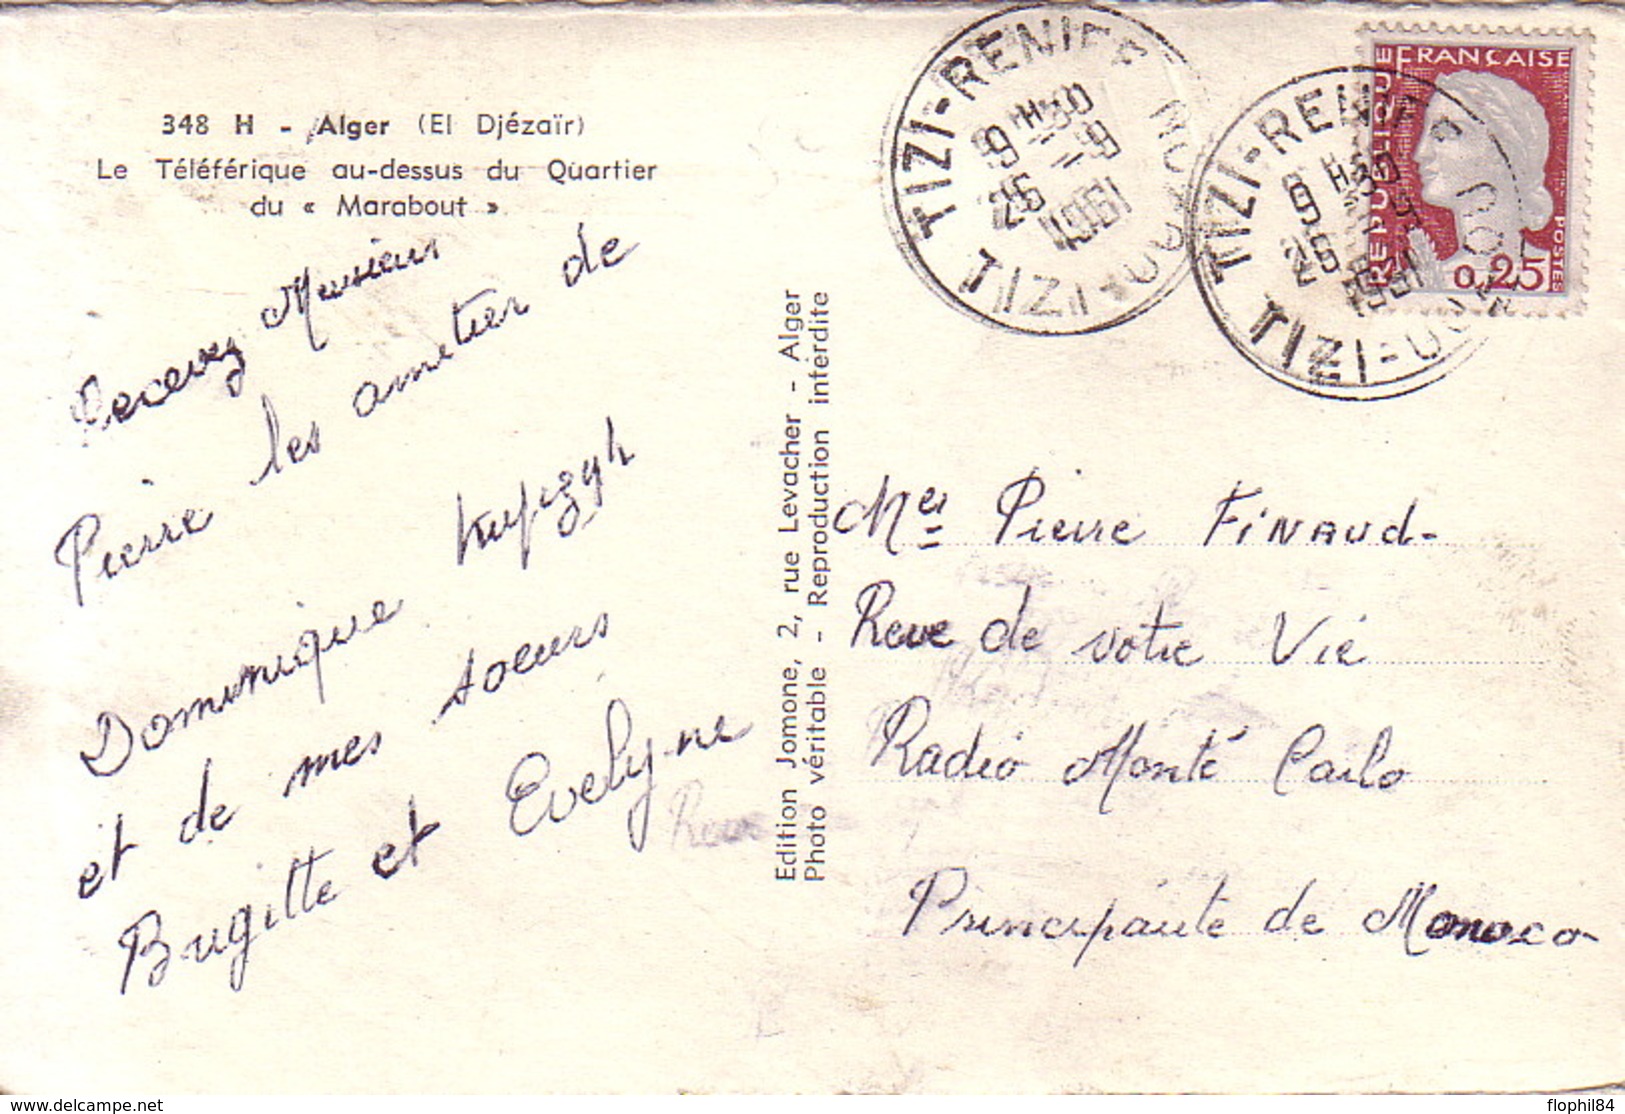 348 H - Alger (El Djézaïr)
Le Téléférique au-dessus du Quartier
du « Marabout »
Recevez Monsieur
Pierre les amitier de
Dominique
et de mes soeurs
Brigitte et Evelyne
Edition Jomone, 2, rue Levacher - Alger
Photo véritable - Reproduction interdite
TIZI-RENIFF
9 H30
26 -9
1961
TIZI-OUZOU
TIZI-RENIFF
9 H30
26 -9
1961
TIZI-OUZOU
REPUBLIQUE FRANÇAISE
POSTES
0,25
Mer Pierre FiNAUD-
Reve de votre Vie
Radio Monté Carlo
Principauté de Monaco
delcampe.net
flophil84